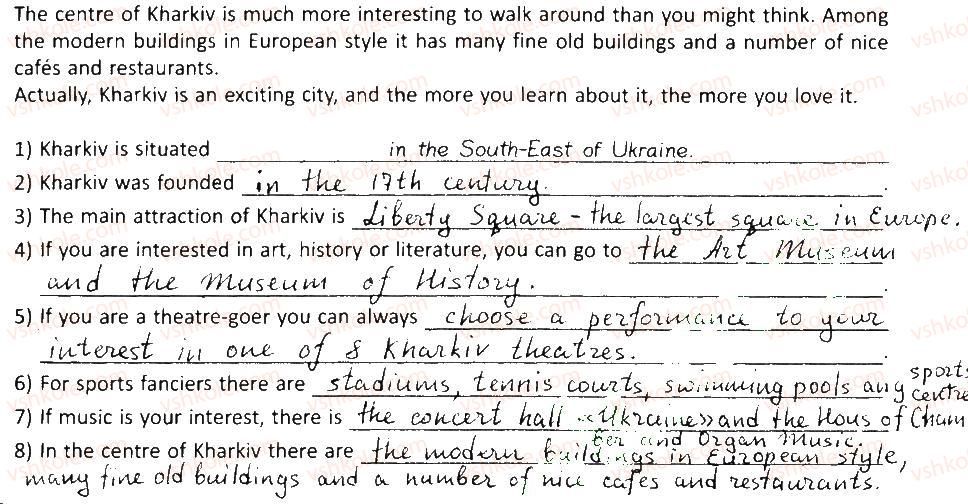 The centre of Kharkiv is much more interesting to walk around than you might think. Among
the modern buildings in European style it has many fine old buildings and a number of nice
cafés and restaurants.
Actually, Kharkiv is an exciting city, and the more you learn about it, the more you love it.
1) Kharkiv is situated in the South-East of Ukraine.
2) Kharkiv was founded in the 17th century.
3) The main attraction of Kharkiv is Liberty Square - the largest square in Europe.
4) If you are interested in art, history or literature, you can go to the Art Museum
and the Museum of History.
5) If you are a theatre-goer you can always choose a performance to your
interest in one of 8 Kharkiv theatres.
6) For sports fanciers there are stadiums, tennis courts, swimming pools any sports
centre
7) If music is your interest, there is the concert hall «Ukraine» and the Hous of Cham
ber and Organ Music.
8) In the centre of Kharkiv there are the modern buildings in European style,
many fine old buildings and a number of nice cafes and restaurants.